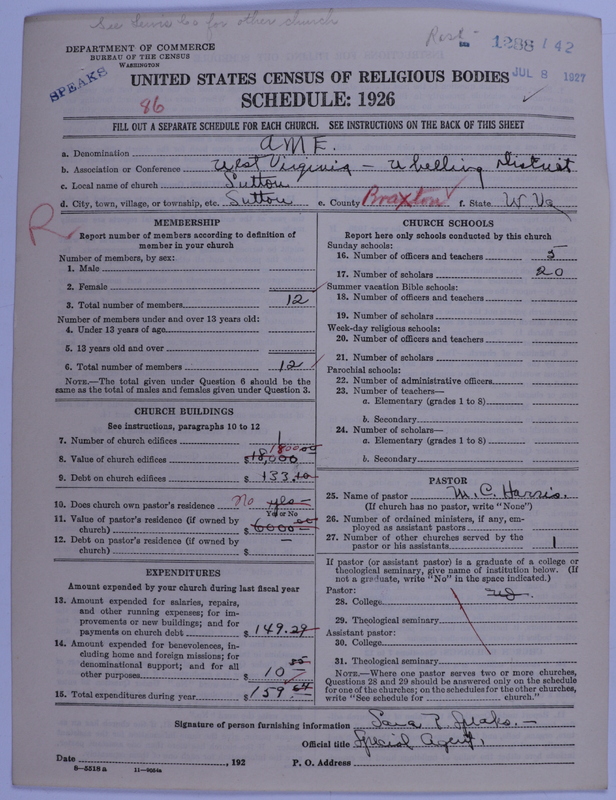 See Lewis Co for other church
DEPARTMENT OF COMMERCE
BUREAU OF THE CENSUS
WASHINGTON
SPEAKS
1288 / 42
JUL 8 1927
UNITED STATES CENSUS OF RELIGIOUS BODIES
SCHEDULE: 1926
86
FILL OUT A SEPARATE SCHEDULE FOR EACH CHURCH. SEE INSTRUCTIONS ON THE BACK OF THIS SHEET
a. Denomination A M E.
b. Association or Conference West Virginia – Wheeling District
c. Local name of church Sutton
d. City, town, village, or township, etc. Sutton e. County Braxton f. State W. Va
R
MEMBERSHIP
Report number of members according to definition of member in your church
Number of members, by sex:
1. Male
2. Female
3. Total number of members 12
Number of members under and over 13 years old:
4. Under 13 years of age
5. 13 years old and over
6. Total number of members 12
NOTE.—The total given under Question 6 should be the same as the total of males and females given under Question 3.
CHURCH BUILDINGS
See instructions, paragraphs 10 to 12
7. Number of church edifices 1
1800.00
8. Value of church edifices $18,000
9. Debt on church edifices $ 133.10
10. Does church own pastor's residence No yes
Yes or No
11. Value of pastor's residence (if owned by church) $6000.00
12. Debt on pastor's residence (if owned by church) $ —
EXPENDITURES
Amount expended by your church during last fiscal year
13. Amount expended for salaries, repairs, and other running expenses; for improvements or new buildings; and for payments on church debt $149.29
14. Amount expended for benevolences, including home and foreign missions; for denominational support; and for all other purposes $ 10
15. Total expenditures during year $159
CHURCH SCHOOLS
Report here only schools conducted by this church
Sunday schools:
16. Number of officers and teachers 5
17. Number of scholars 20
Summer vacation Bible schools:
18. Number of officers and teachers
19. Number of scholars
Week-day religious schools:
20. Number of officers and teachers
21. Number of scholars
Parochial schools:
22. Number of administrative officers
23. Number of teachers—
a. Elementary (grades 1 to 8)
b. Secondary
24. Number of scholars—
a. Elementary (grades 1 to 8)
b. Secondary
PASTOR
25. Name of pastor M. C. Harris.
(If church has no pastor, write "None")
26. Number of ordained ministers, if any, employed as assistant pastors
27. Number of other churches served by the pastor or his assistants 1
If pastor (or assistant pastor) is a graduate of a college or theological seminary, give name of institution below. (If not a graduate, write "No" in the space indicated.)
Pastor:
28. College
29. Theological seminary
Assistant pastor:
30. College
31. Theological seminary
NOTE.—Where one pastor serves two or more churches, Questions 28 and 29 should be answered only on the schedule for one of the churches; on the schedules for the other churches, write "See schedule for church."
Signature of person furnishing information Sara P. Speaks.
Official title Special Agent,
Date , 192 P. O. Address
8—5518 a 11—9064a